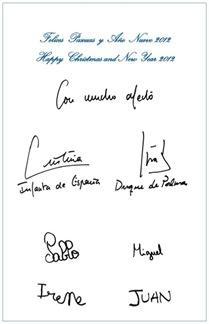 Felices Pascuas y Año Nuevo 2012
Happy Christmas and New Year 2012
Con mucho afecto
Cristina
Iñaki
Infanta de España
Duque de Palma
Pablo
Miguel
Irene
JUAN